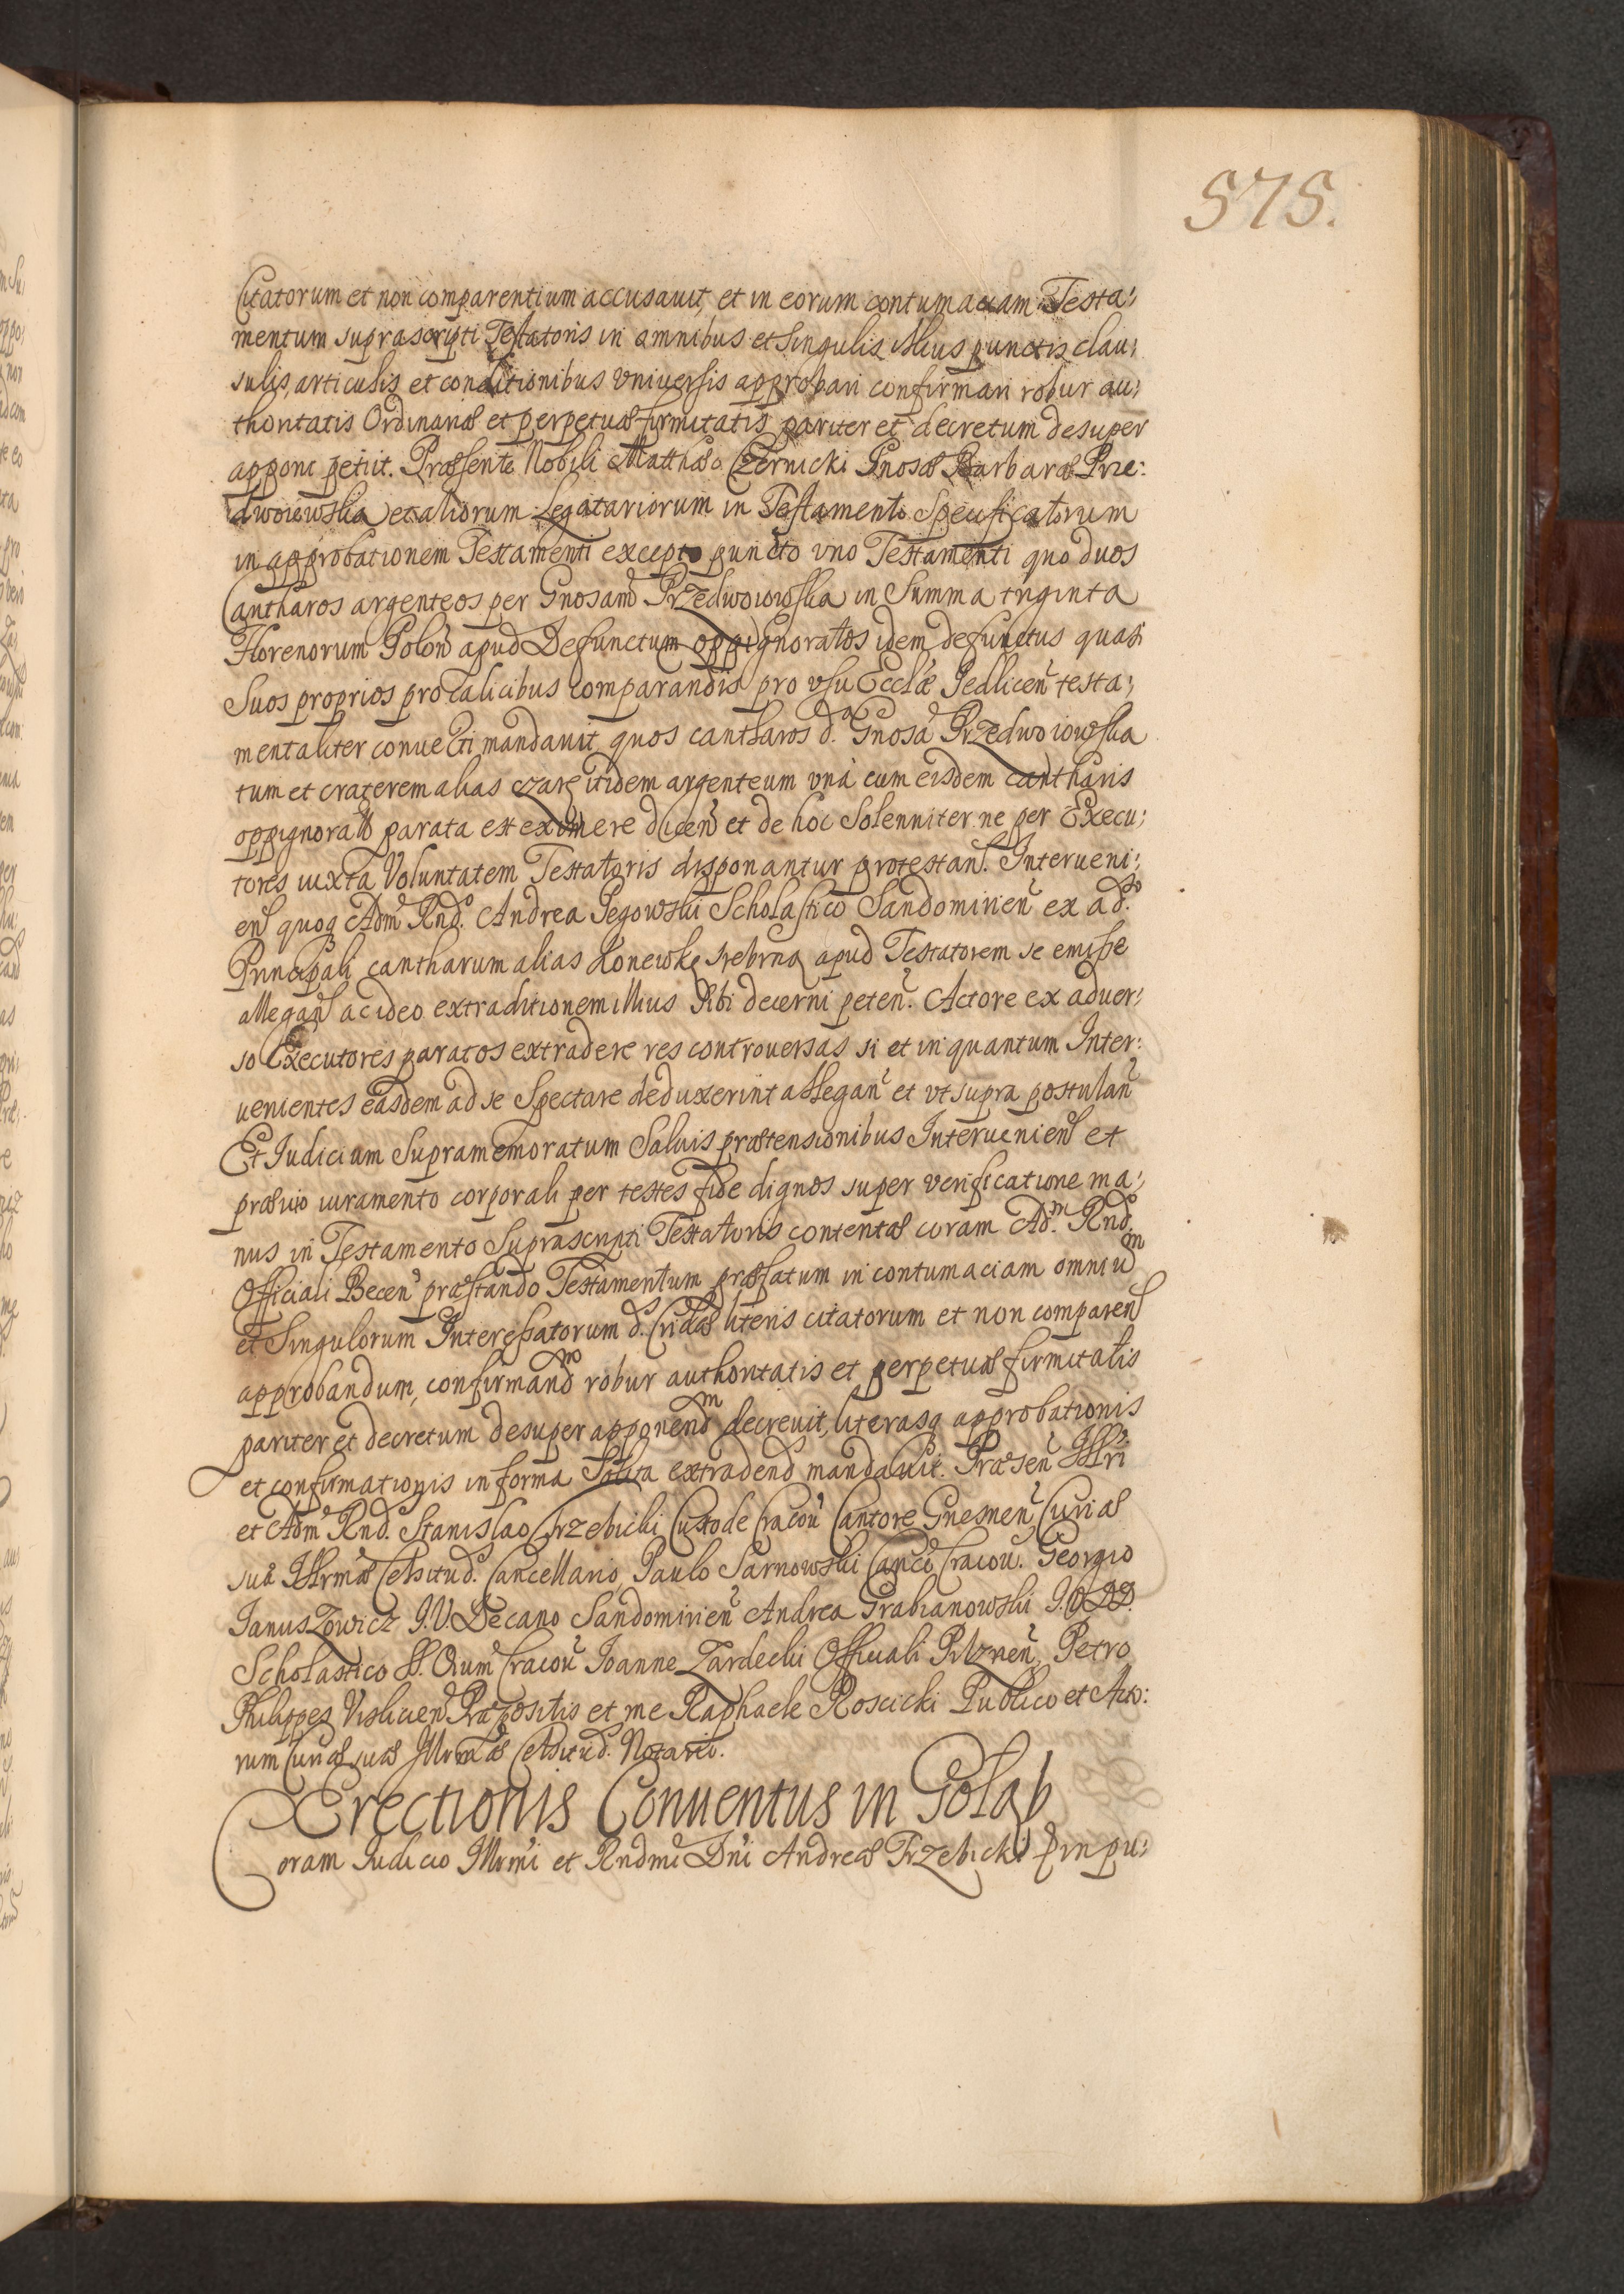 575.
Citatorum et non comparentium accusauit, et in eorum contumaciam Testa:
mentum suprascripti Testatoris in omnibus et singulis illius punctis clau:
sulis, articulis et conditionibus vniuersis approbari confirmari robur au:
thoritatis Ordinariæ et perpetuæ firmitatis pariter et decretum desuper
apponi petiit. Præsente Nobili Matthæo Czernicki Gnosæ Barbaræ Prze:
dwoiewska et aliorum Legatariorum in Testamento Specificatorum
in approbationem Testamenti excepto puncto vno Testamenti quo duos
Cantharos argenteos per Gnosam Przedwoiowska in Summa triginta
Florenorum Polon apud Defunctum oppignoratos idem defunctus quasi
Suos proprios pro Calicibus comparandis pro vsu Ecclæ Jedlicen testa:
mentaliter conuerti mandauit quos cantharos d. Gnosa Przedwoiowska
tum et craterem alias czarę itidem argenteum vnà cum eisdem cantharis
oppignorato parata est eximere dicen et de hoc Solenniter ne per Execu:
tores iuxta Voluntatem Testatoris disponantur protestan. Interueni:
en quoq Adm Rndo. Andrea Pegowski Scholastico Sandomirien ex ad.so
Principali cantharum alias Konewkę srebrną apud Testatorem se emisse
allegan ac ideo extraditionem illius sibi decerni peten. Actore ex aduer:
so Executores paratos extradere res controuersas si et in quantum Inter:
uenientes easdem ad se Spectare deduxerint allegan et vt supra postulan
Et Iudicium Supramemoratum Saluis prætensionibus Interuenien et
præuio iuramento corporali per testes fide dignos super verificatione ma:
nus in Testamento Suprascripti Testatoris contentæ coram Ad.m Rndo.
Officiali Becen præstando Testamentum præfatum in contumaciam omnium
et Singulorum Interessatorum d. Cridæ literis citatorum et non comparen
approbandum, confirmandmo robur authoritatis et perpetuæ firmitatis
pariter et decretum desuper apponendm decreuit, literasq approbationis
et confirmationis in forma Solita extradend mandauit. Præsen Illri
et Adm Rnd. Stanislao Trzebicki Custode Cracou Cantore Gnesnen Curiæ
suæ Illrmæ Celsitud. Cancellario, Paulo Sarnowski Canco Cracou. Georgio
Ianuszowicz I.V. Decano Sandomirien Andrea Grabianowski
Scholastico Cracou Ioanne Zardecki Officiali Pilznen, Petro
Philippes Vislicien Præpositis et me Raphaele Roscicki Publico et Acto:
rum Curiæ suæ Illrmæ Celsitud. Notario.
Erectionis Conuentus in Gołąb
Coram Iudicio Illrmi et Rndmi Dni Andreæ Trzebicki Prinpu: